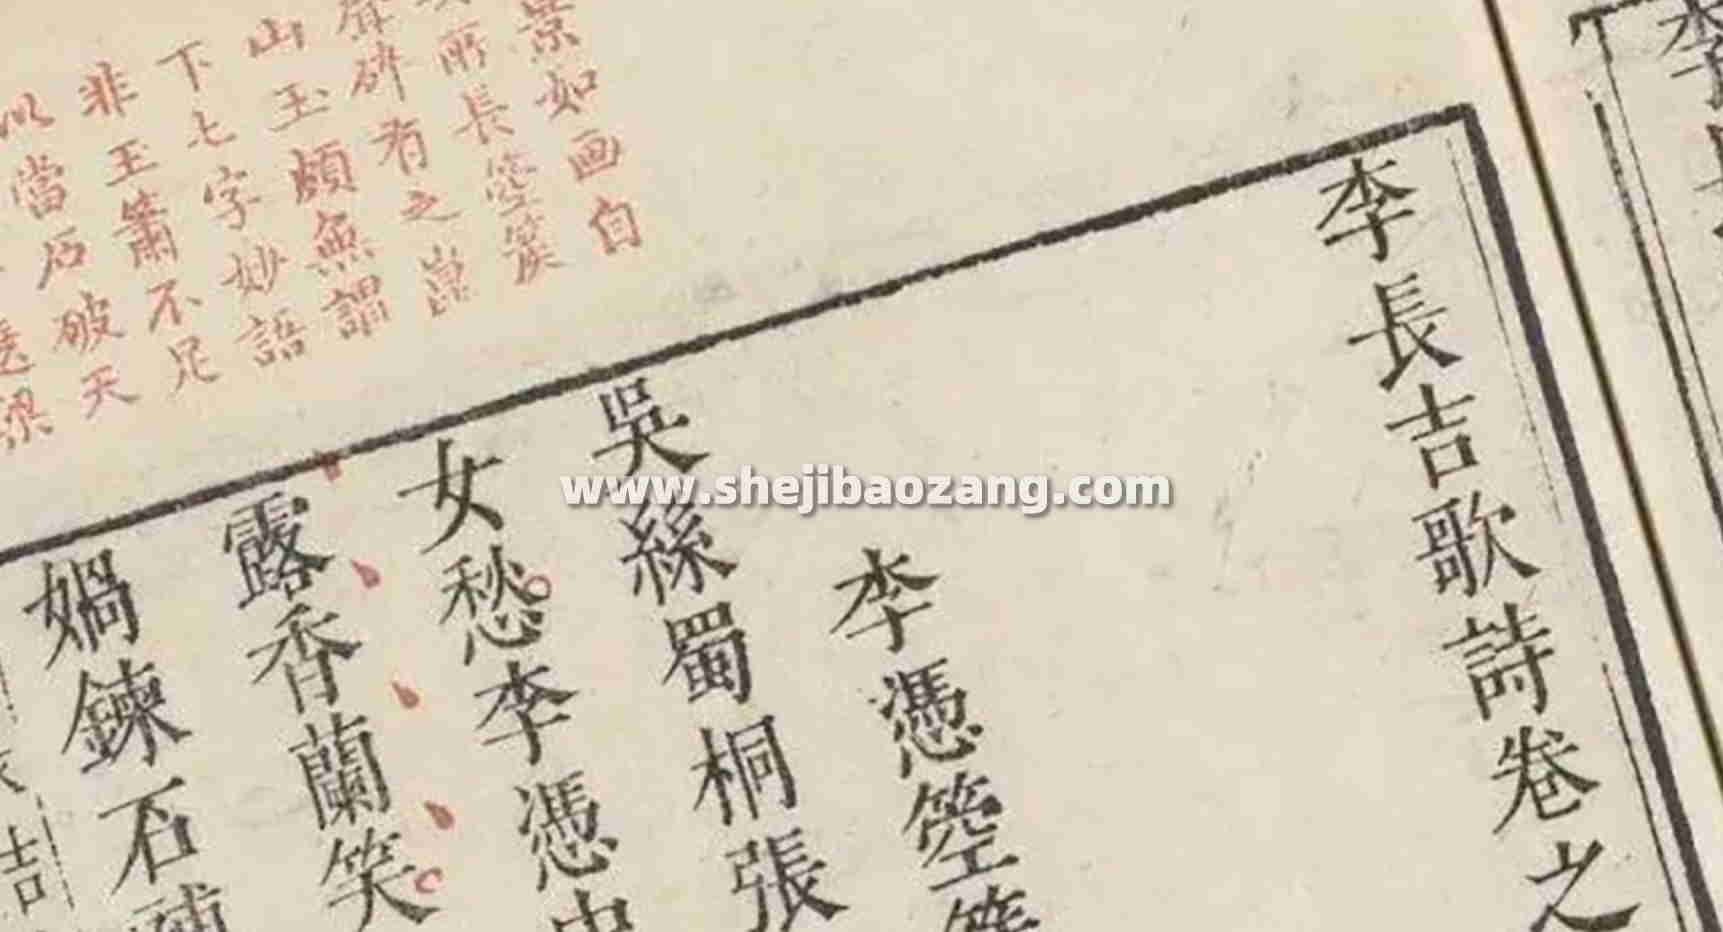 李長吉歌詩卷之
李憑箜篌
吳絲蜀桐張
女愁李憑中
露香蘭笑
媧鍊石補
吉
景如畫白
所長箜篌
碎有之崑
山玉頗無謂
下七字妙語
非玉簫不足
以當石破天
www.shejibaozang.com